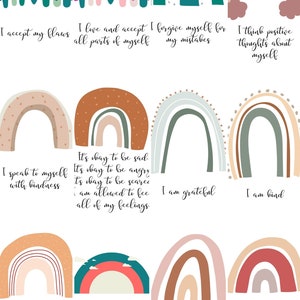 I accept my flaws
I love and accept
all parts of myself
I forgive myself for
my mistakes
I think positive
thoughts about
myself
I speak to myself
with kindness
It's okay to be sad
It's okay to be angry
It's okay to be scared
I am allowed to feel
all of my feelings
I am grateful
I am kind